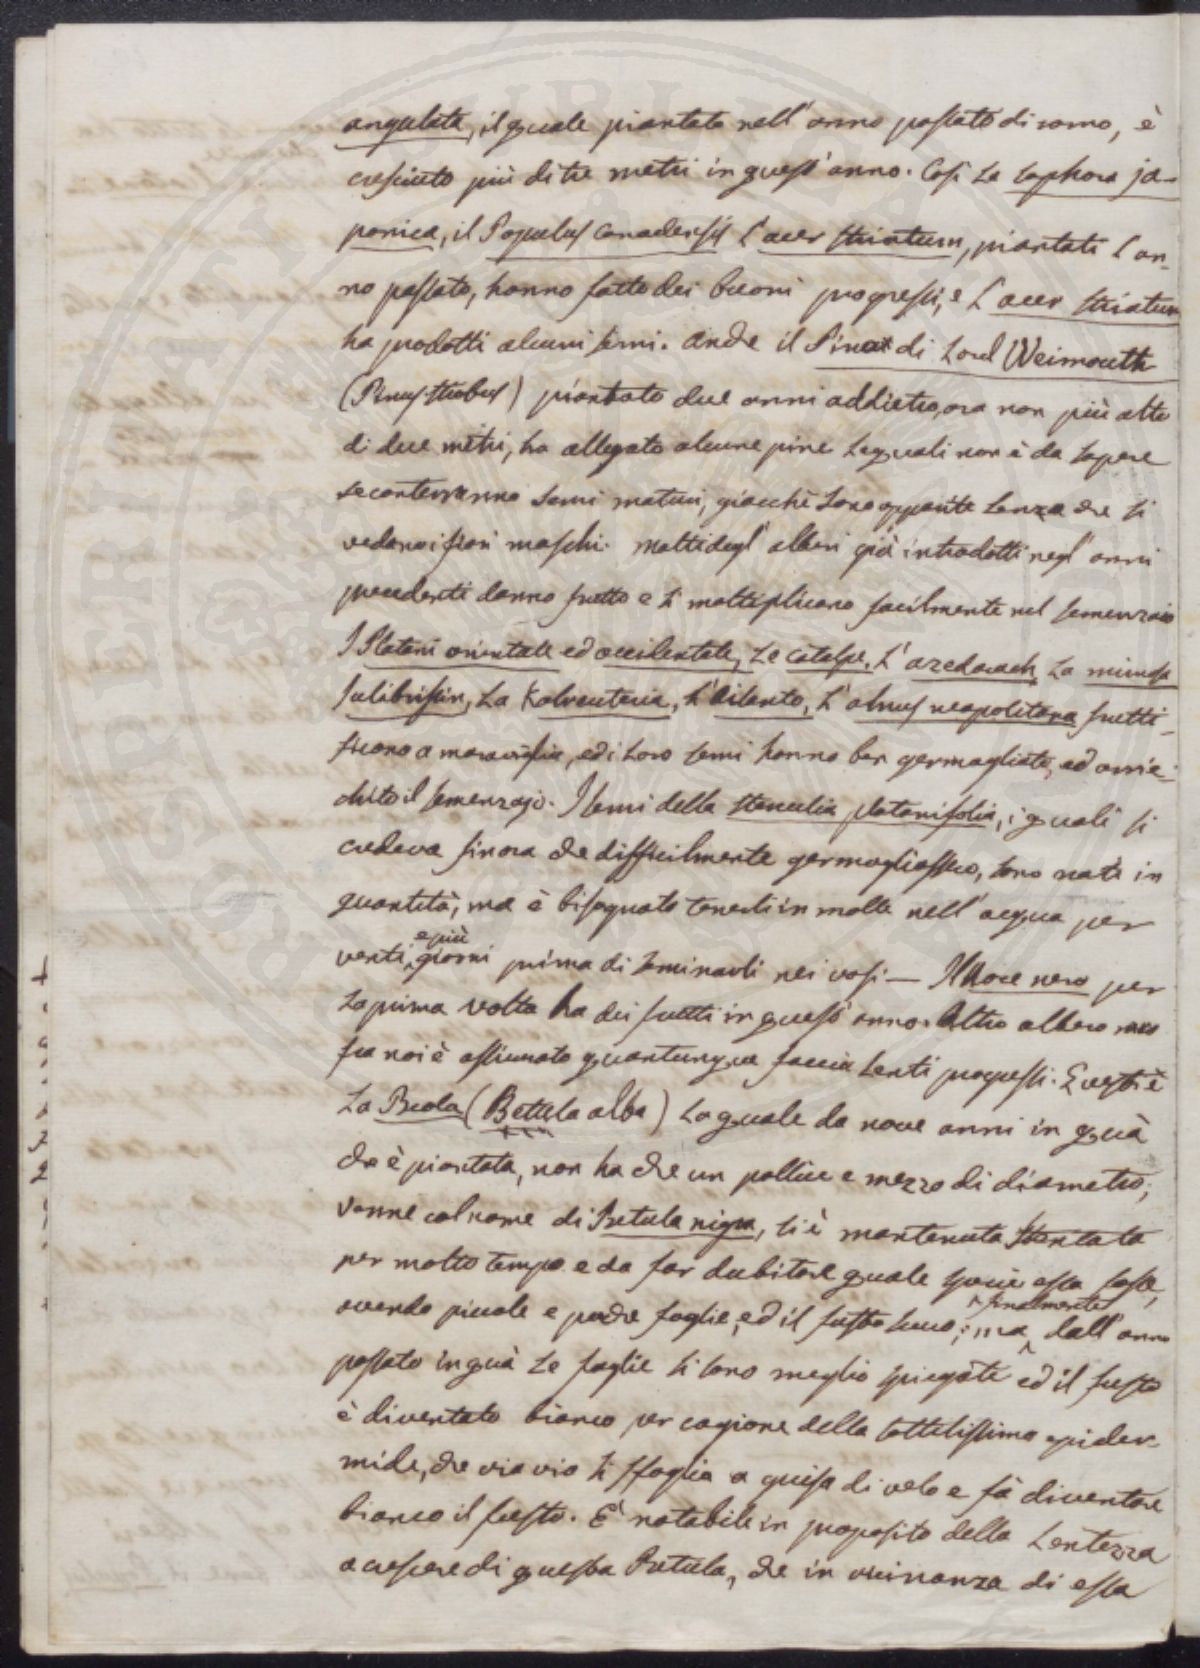 angulata, il quale piantato nell'anno passato di ramo, è
cresciuto più di tre metri in quest'anno. Così la sophora ja-
ponica, il Populus canadensis l'acer striatum, piantati l'an-
no passato, hanno fatto dei buoni progressi, e l'acer striatum
ha prodotti alcuni semi. Anche il Pino di Lord Weimouth
(Pinus strobus) piantato due anni addietro, ora non più alto
di due metri, ha allegato alcune pine le quali non è da sapere
se conterranno semi maturi, giacchè sono apparite senza che si
vedano i fiori maschi. Molti degl'alberi già introdotti negl'anni
precedenti danno frutto e si moltiplicano facilmente nel semenzaio
I Platani orientale ed occidentale, Le catalpe, L'azedarach, La mimosa
Julibrissin, La Kolreuteria, L'ailanto, L'alnus neapolitana frutti-
ficano a maraviglia, ed i loro semi hanno ben germogliato, ed arric-
chito il semenzajo. I semi della sterculia platanifolia, i quali si
credeva finora che difficilmente germogliassero, sono nati in
quantità, ma è bisognato tenerli in molle nell'acqua per
venti e più giorni prima di seminarli nei vasi — Il Noce nero per
la prima volta ha dei frutti in quest'anno. Altro albero raro
fra noi è assicurato quantunque faccia lenti progressi. Questi è
La Beola (Betula alba) la quale da nove anni in quà
che è piantata, non ha che un pollice e mezzo di diametro;
venne col nome di Betula nigra, si è mantenuta stentata
per molto tempo e da far dubitare quale specie essa fosse,
avendo piccole e poche foglie, ed il fusto scuro; ma finalmente dall'anno
passato in quà le foglie si sono meglio spiegate ed il fusto
è diventato bianco per cagione della sottilissima epider-
mide, che via via si sfoglia a guisa di velo e fà diventare
bianco il fusto. È notabile in proposito della lentezza
a crescere di questa Betula, che in vicinanza di essa